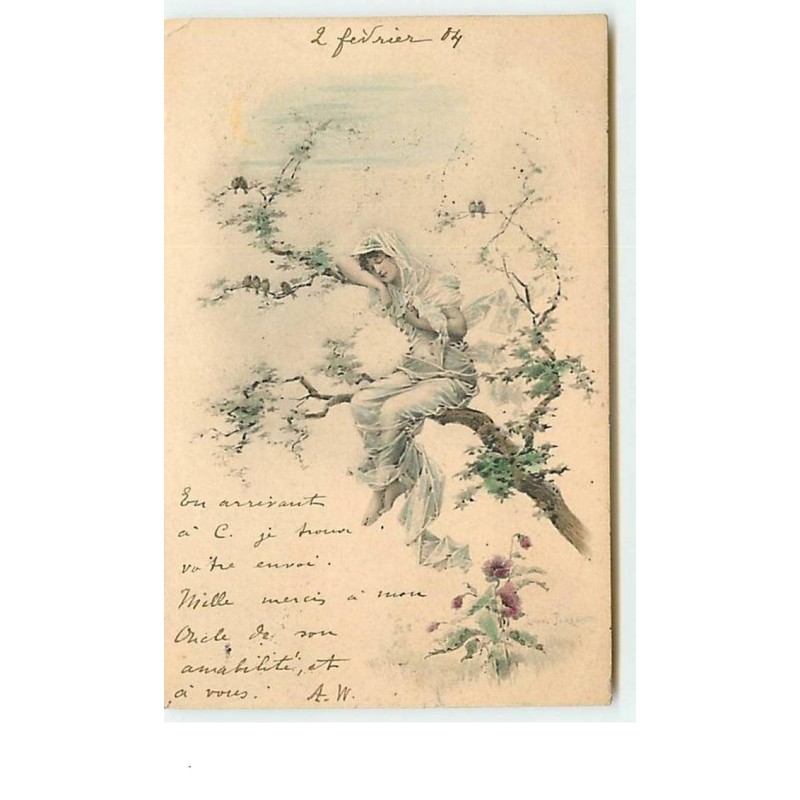 2 fevrier 04
En arrivant
à C. je trouve
votre envoi.
Mille mercis à mon
Oncle de son
amabilité, et
à vous. A. W.